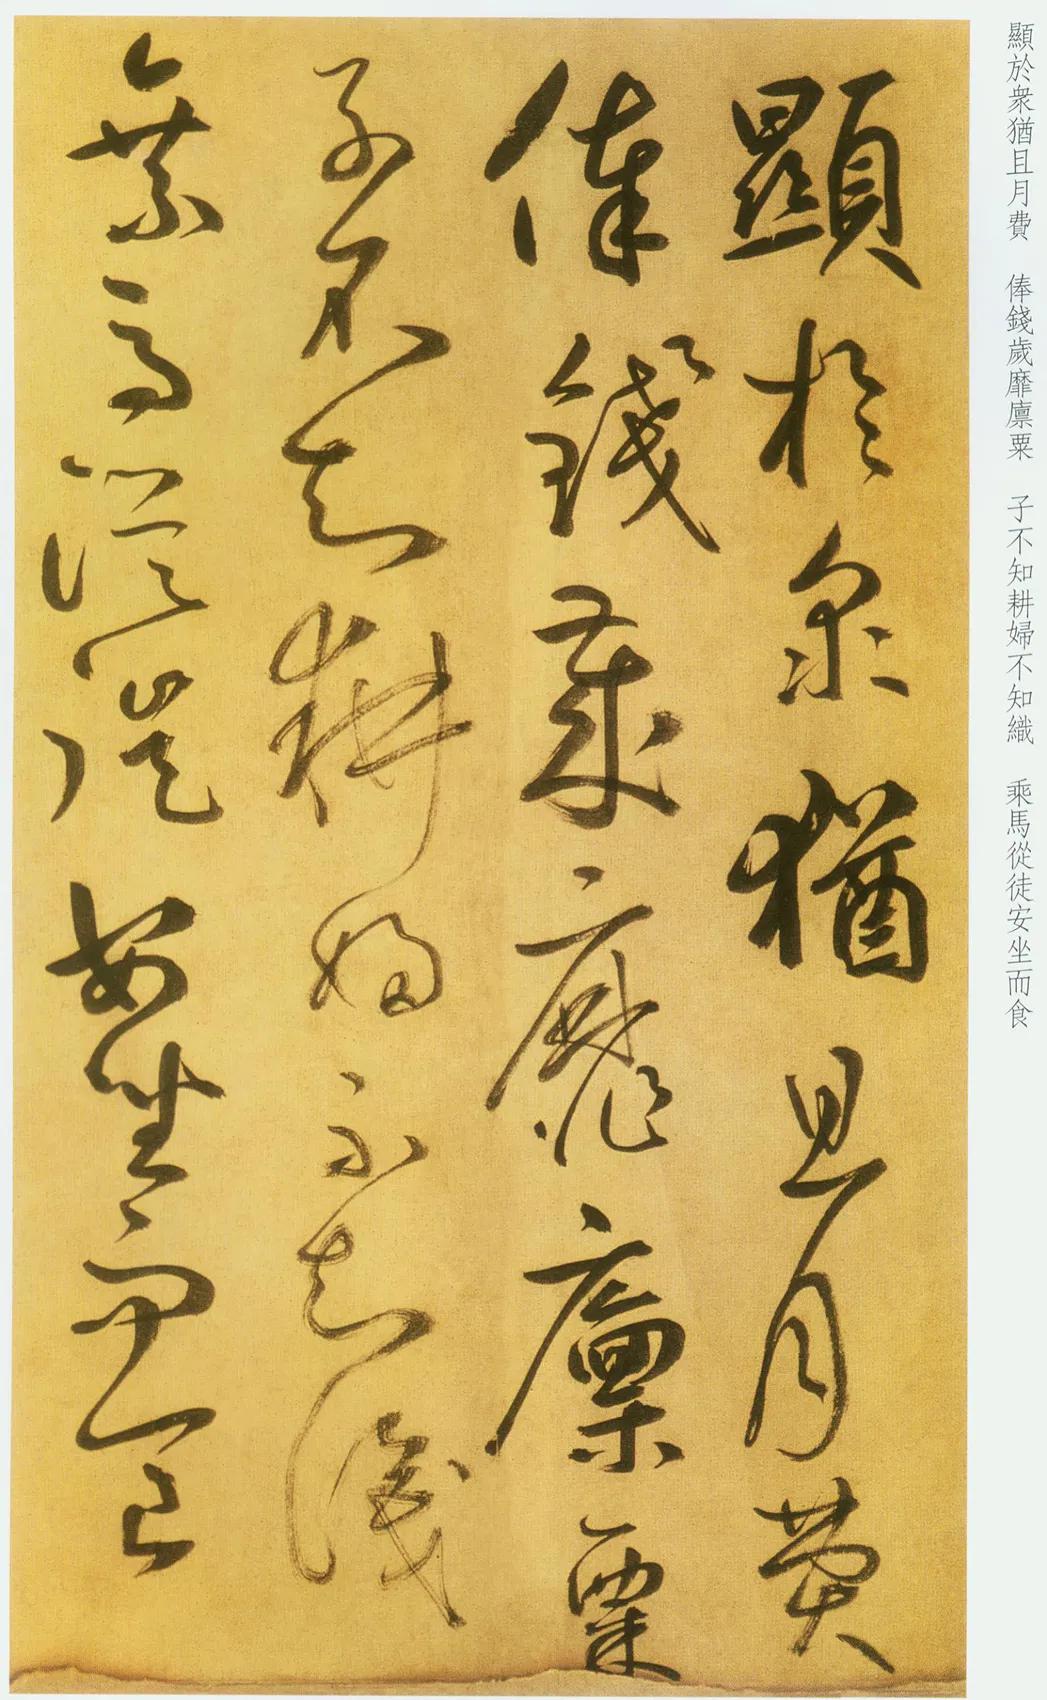 顯於衆猶且月費　俸錢歲靡廩粟　子不知耕婦不知織　乘馬從徒安坐而食
顯於衆猶且月費
俸錢歲靡廩粟
子不知耕婦不知織
乘馬從徒安坐而食